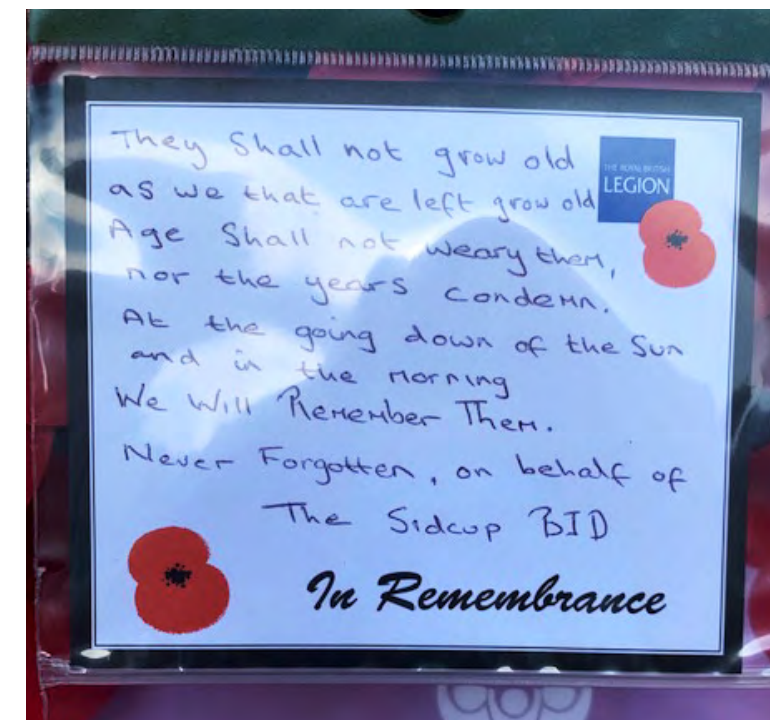 They Shall not grow old
THE ROYAL BRITISH
LEGION
as we that are left grow old
Age Shall not weary them,
nor the years condemn.
At the going down of the Sun
and in the morning
We Will Remember Them.
Never Forgotten, on behalf of
The Sidcup BID
In Remembrance